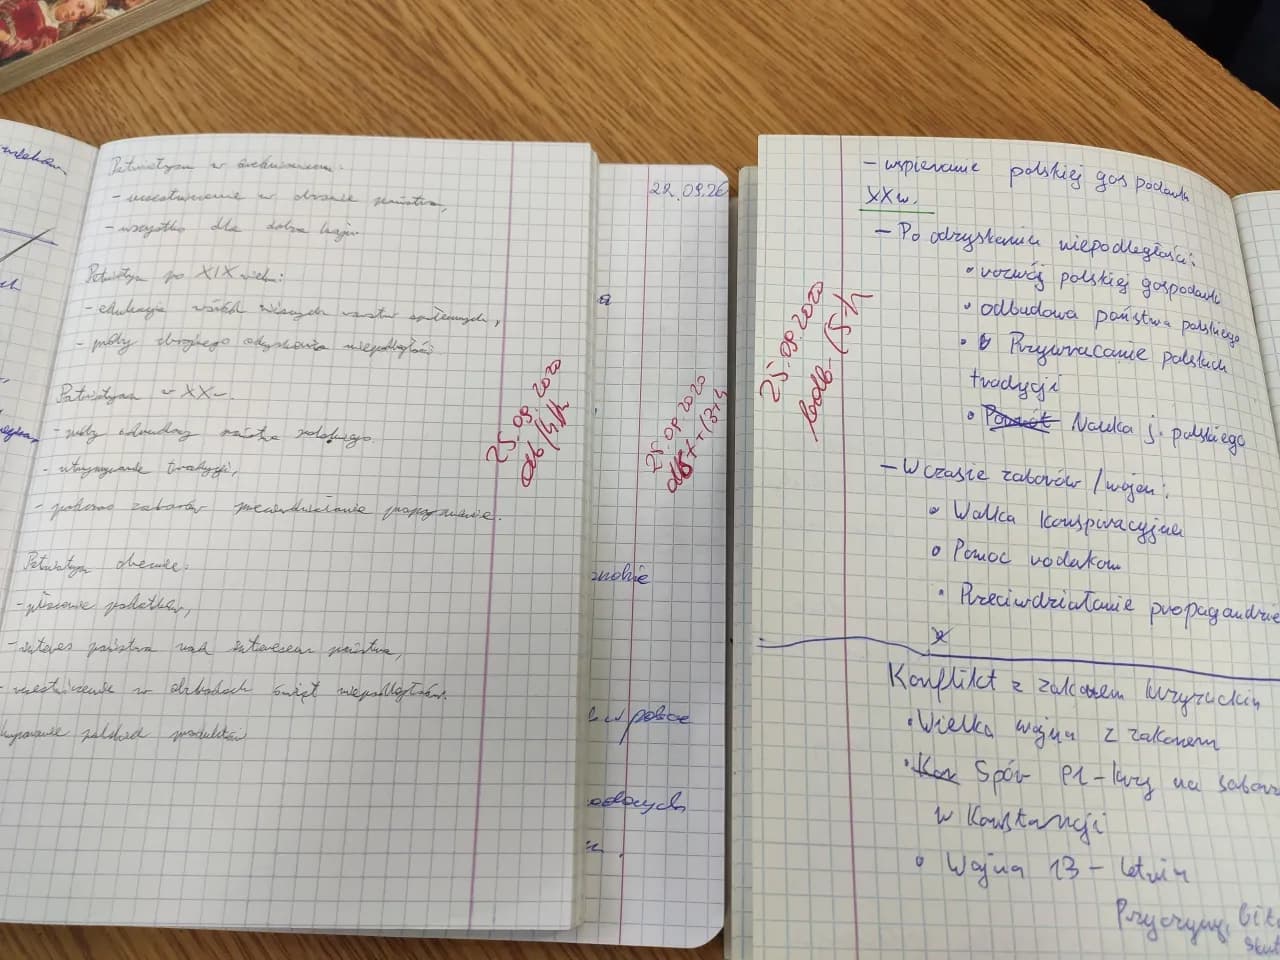 Patriotyzm w
- uczestniczenie w obronie państwa,
- wszystko dla dobra kraju.
Patriotyzm po XIX wieku:
- edukacja wśród niższych warstw społecznych,
- próby zbrojnego odzyskania niepodległości
Patriotyzm w XXw.
- próby odbudowy państwa polskiego.
- utrzymywanie tradycji,
- podczas zaborów przeciwdziałanie propagandzie.
Patriotyzm obecnie:
- płacenie podatków,
- interes państwa nad interesem państwa,
- uczestniczenie w obchodach świąt niepodległości.
kupowanie polskich produktów
25.09.2020
22.09.20
25.09.2020
w polsce
25.09.2020
- wspieranie polskiej gospodarki
XXw.
- Po odzyskaniu niepodległości:
• rozwój polskiej gospodarki
• odbudowa państwa polskiego
• Przywracanie polskich
tradycji
• Nauka j. polskiego
- W czasie zaborów / wojen:
• Walka konspiracyjna
• Pomoc rodakom
• Przeciwdziałanie propagandzie
Konflikt z zakonem krzyżackim
• Wielka wojna z zakonem
• Spór Pl - krzy na soborze
w Konstancji
• Wojna 13 - letnia
Przyczyny,